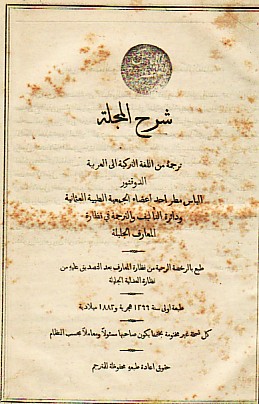 شرح المجلة
ترجمة من اللغة التركية الى العربية
الدوقتور
الياس مطر احد اعضاء الجمعية الطبية العثمانية
ودائرة التأليف والترجمة في نظارة
المعارف الجليلة
طبع بالرخصة الرسمية من نظارة المعارف بعد التصديق عليه من
نظارة العدلية الجليلة
طبعة اولى سنة ١٢٩٩ هجرية و١٨٨٢ ميلادية
كل نسخة غير مختومة بختمنا يكون صاحبها مسئولاً ومعاملاً بحسب النظام
حقوق اعادة طبعه محفوظة للمترجم